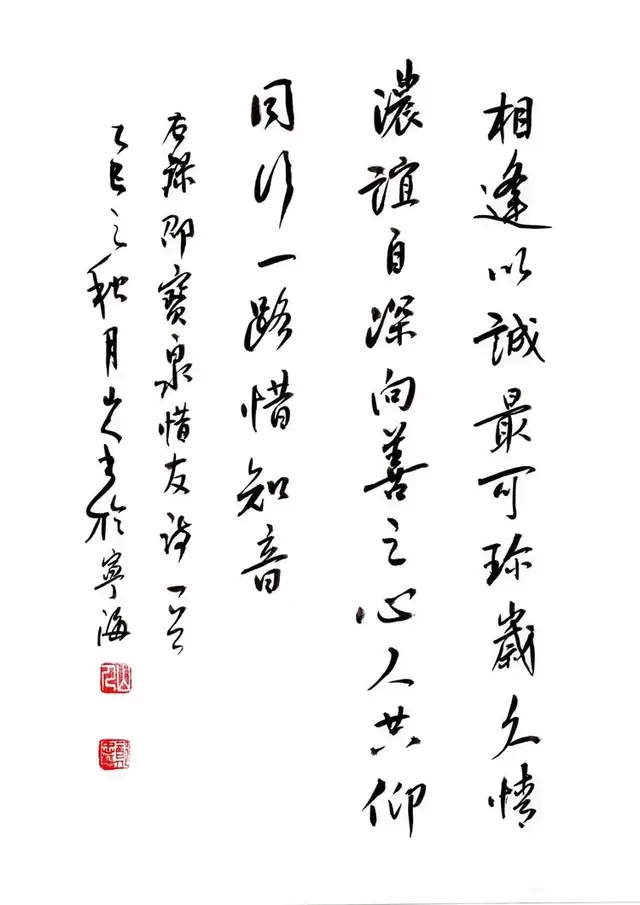 相逢以誠最可珍歲久情
濃誼自深向善之心人共仰
同行一路惜知音
右錄邵寶泉惜友詩一首
乙巳之秋月山人书於寧海